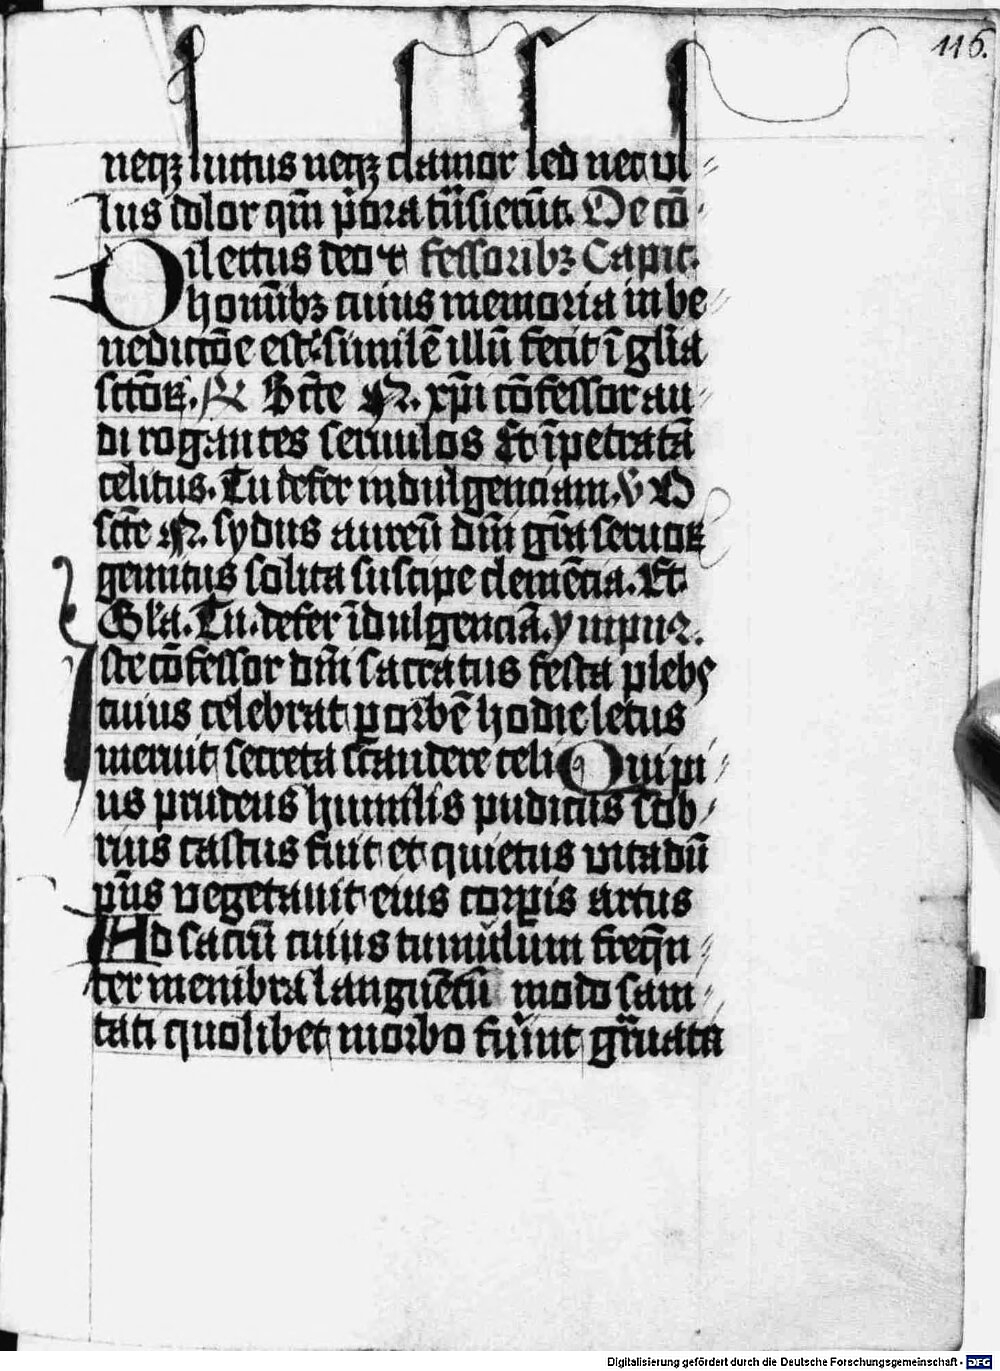 116.
neqꝫ luctus neqꝫ clamor sed nec ul
lus dolor qm̅ p̅ora tn̅sierūt. De cō
Dilectus deo ⁊ fessoribꝫ Capit.
homībꝫ cuius memoria in be
nedictōe est. similē illū fecit ī gl̅ia
sctōꝝ. ℟ Scē N. xp̅i cōfessor au
di rogantes seruulos Et īpetratā
celitus. Tu defer indulgenciam. V̅ O
scē N. sydus aureū dn̅i gr̅a seruoꝝ
gemitus solita suscipe clemēcia. Et
Gl̅a. Tu. defer īdulgenciā. ympnꝰ.
Iste cōfessor dn̅i sacratus festa plebs
cuius celebrat ꝑ orbē hodie letus
meruit secreta scandere celi Qui pi
us prudens humilis pudicus sob
rius castus fuit et quietus vita dū
pn̅s vegetauit eius corꝑis artus
Ad sacrū cuius tumulum freqn̅
ter membra languētū modo sani
tati quolibet morbo fuīnt gr̅uata
Digitalisierung gefördert durch die Deutsche Forschungsgemeinschaft - DFG